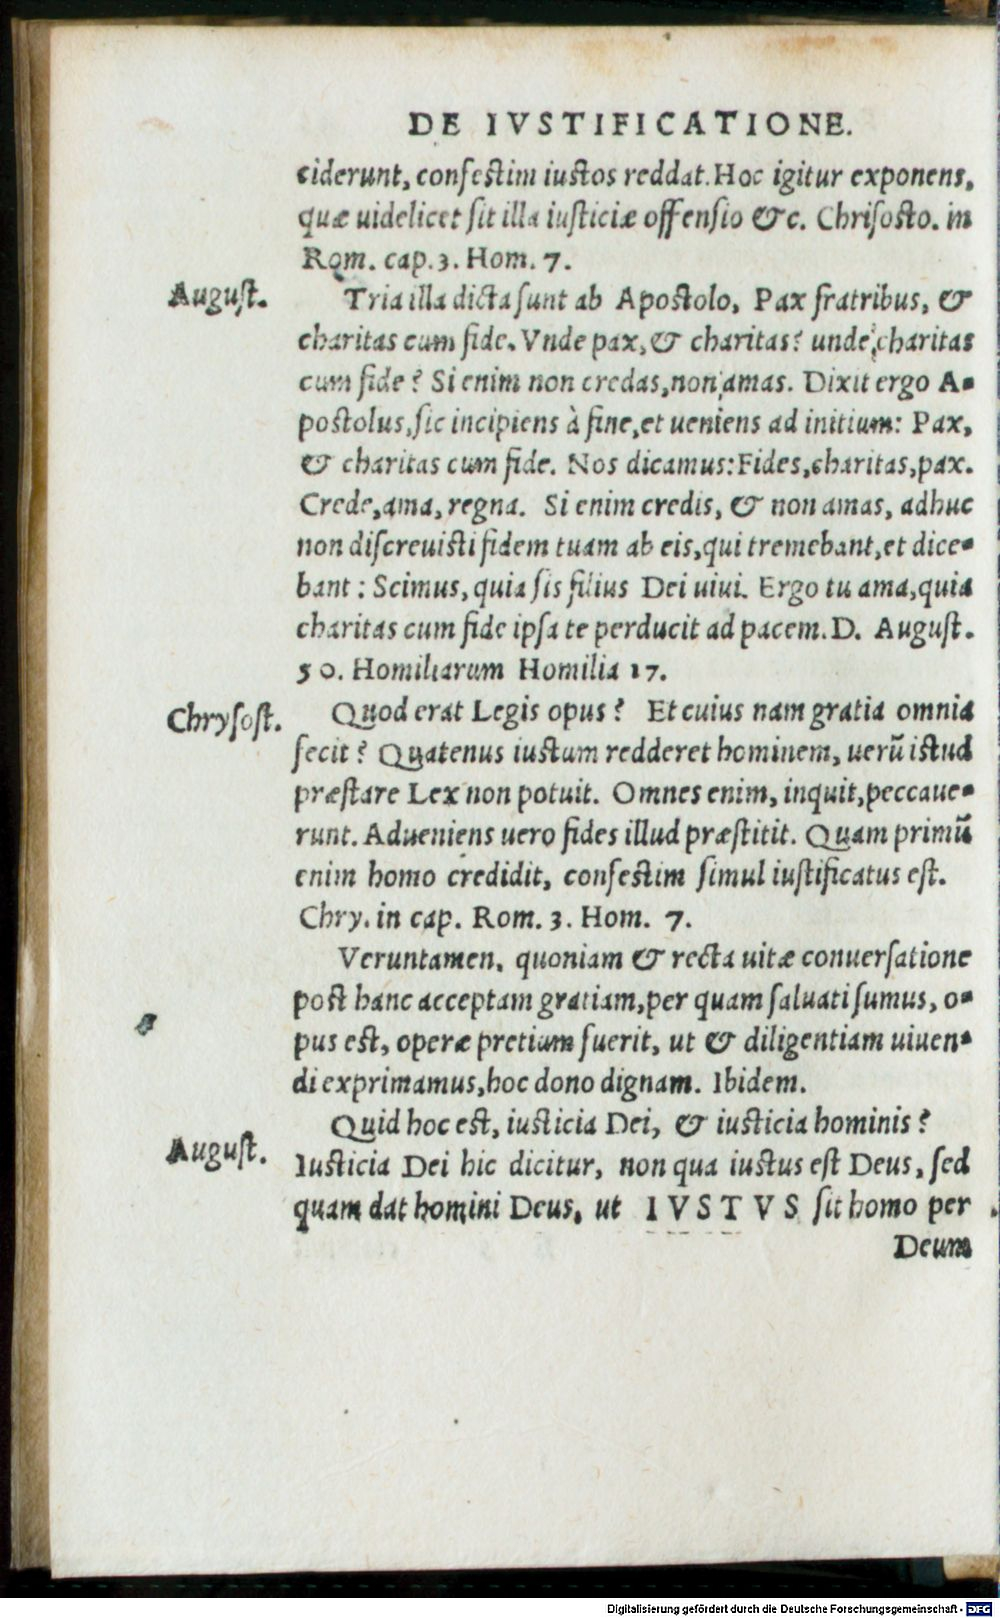 DE IVSTIFICATIONE.
ciderunt, confestim iustos reddat. Hoc igitur exponens,
quæ uidelicet sit illa iusticiæ offensio &c. Chrisosto. in
Rom. cap. 3. Hom. 7.
August.
Tria illa dicta sunt ab Apostolo, Pax fratribus, &
charitas cum fide. Vnde pax, & charitas? unde charitas
cum fide? Si enim non credas, non amas. Dixit ergo A-
postolus, sic incipiens à fine, et ueniens ad initium: Pax,
& charitas cum fide. Nos dicamus: Fides, charitas, pax.
Crede, ama, regna. Si enim credis, & non amas, adhuc
non discreuisti fidem tuam ab eis, qui tremebant, et dice-
bant: Scimus, quia sis filius Dei uiui. Ergo tu ama, quia
charitas cum fide ipsa te perducit ad pacem. D. August.
50. Homiliarum Homilia 17.
Chrysost.
Quod erat Legis opus? Et cuius nam gratia omnia
fecit? Quatenus iustum redderet hominem, uerũ istud
præstare Lex non potuit. Omnes enim, inquit, peccaue-
runt. Adueniens uero fides illud præstitit. Quam primũ
enim homo credidit, confestim simul iustificatus est.
Chry. in cap. Rom. 3. Hom. 7.
Veruntamen, quoniam & recta uitæ conuersatione
post hanc acceptam gratiam, per quam saluati sumus, o-
pus est, operæ pretium fuerit, ut & diligentiam uiuen-
di exprimamus, hoc dono dignam. Ibidem.
August.
Quid hoc est, iusticia Dei, & iusticia hominis?
Iusticia Dei hic dicitur, non qua iustus est Deus, sed
quam dat homini Deus, ut IVSTVS sit homo per
Deum
Digitalisierung gefördert durch die Deutsche Forschungsgemeinschaft - DFG